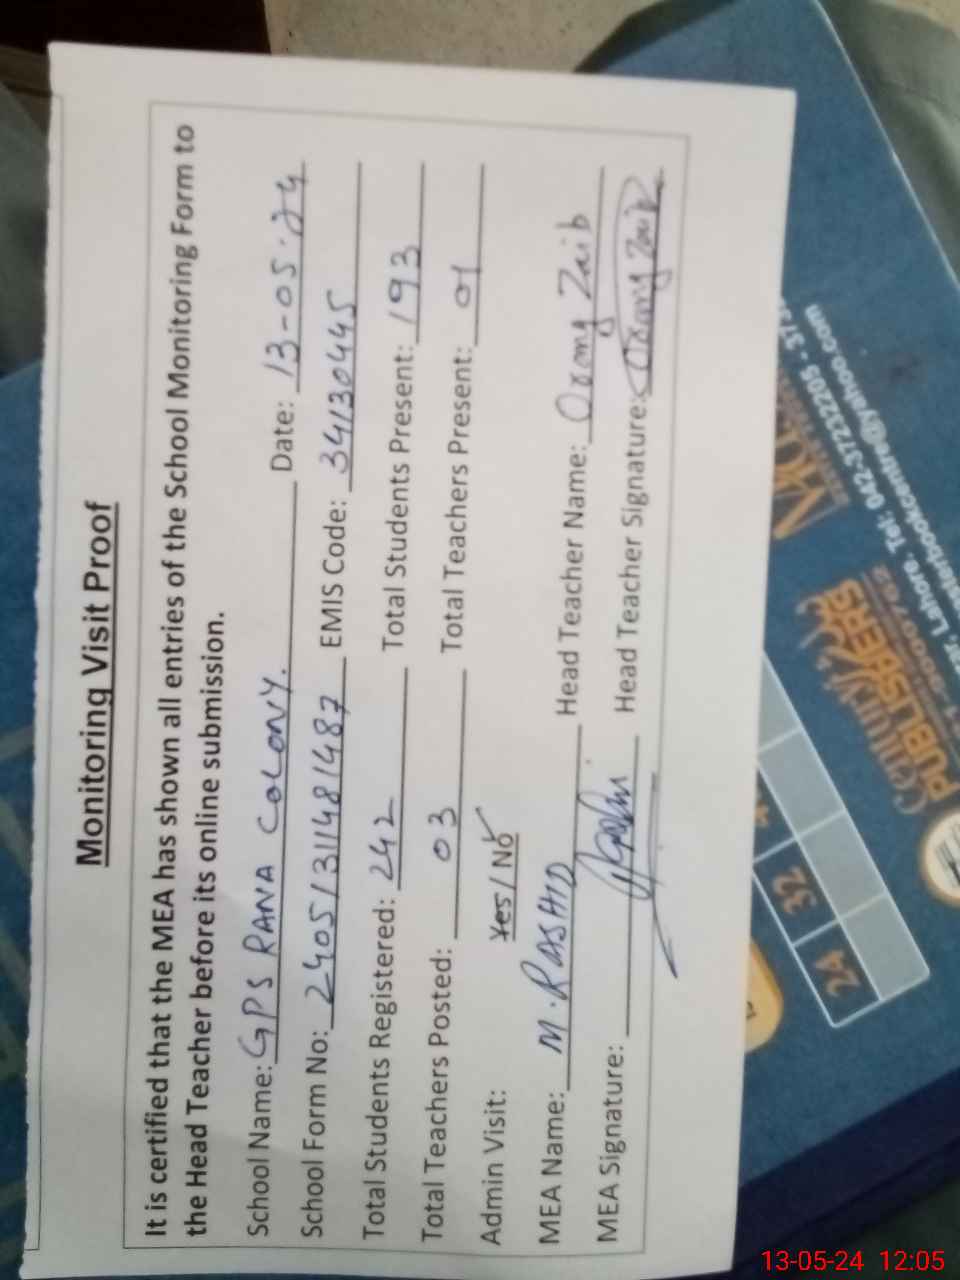 Monitoring Visit Proof
It is certified that the MEA has shown all entries of the School Monitoring Form to
the Head Teacher before its online submission.
School Name: GPS RANA COLONY. Date: 13-05-24
School Form No: 24051311481487 EMIS Code: 34130445
Total Students Registered: 242 Total Students Present: 193
Total Teachers Posted: 03 Total Teachers Present: 01
Admin Visit: Yes / No ✓
MEA Name: M. RASHID Head Teacher Name: Orang Zaib
MEA Signature: Head Teacher Signature: Orang Zaib
PUBLISHERS
Lahore, Tel: 042-37232205 - 373
@yahoo.com
24 32 4
13-05-24 12:05